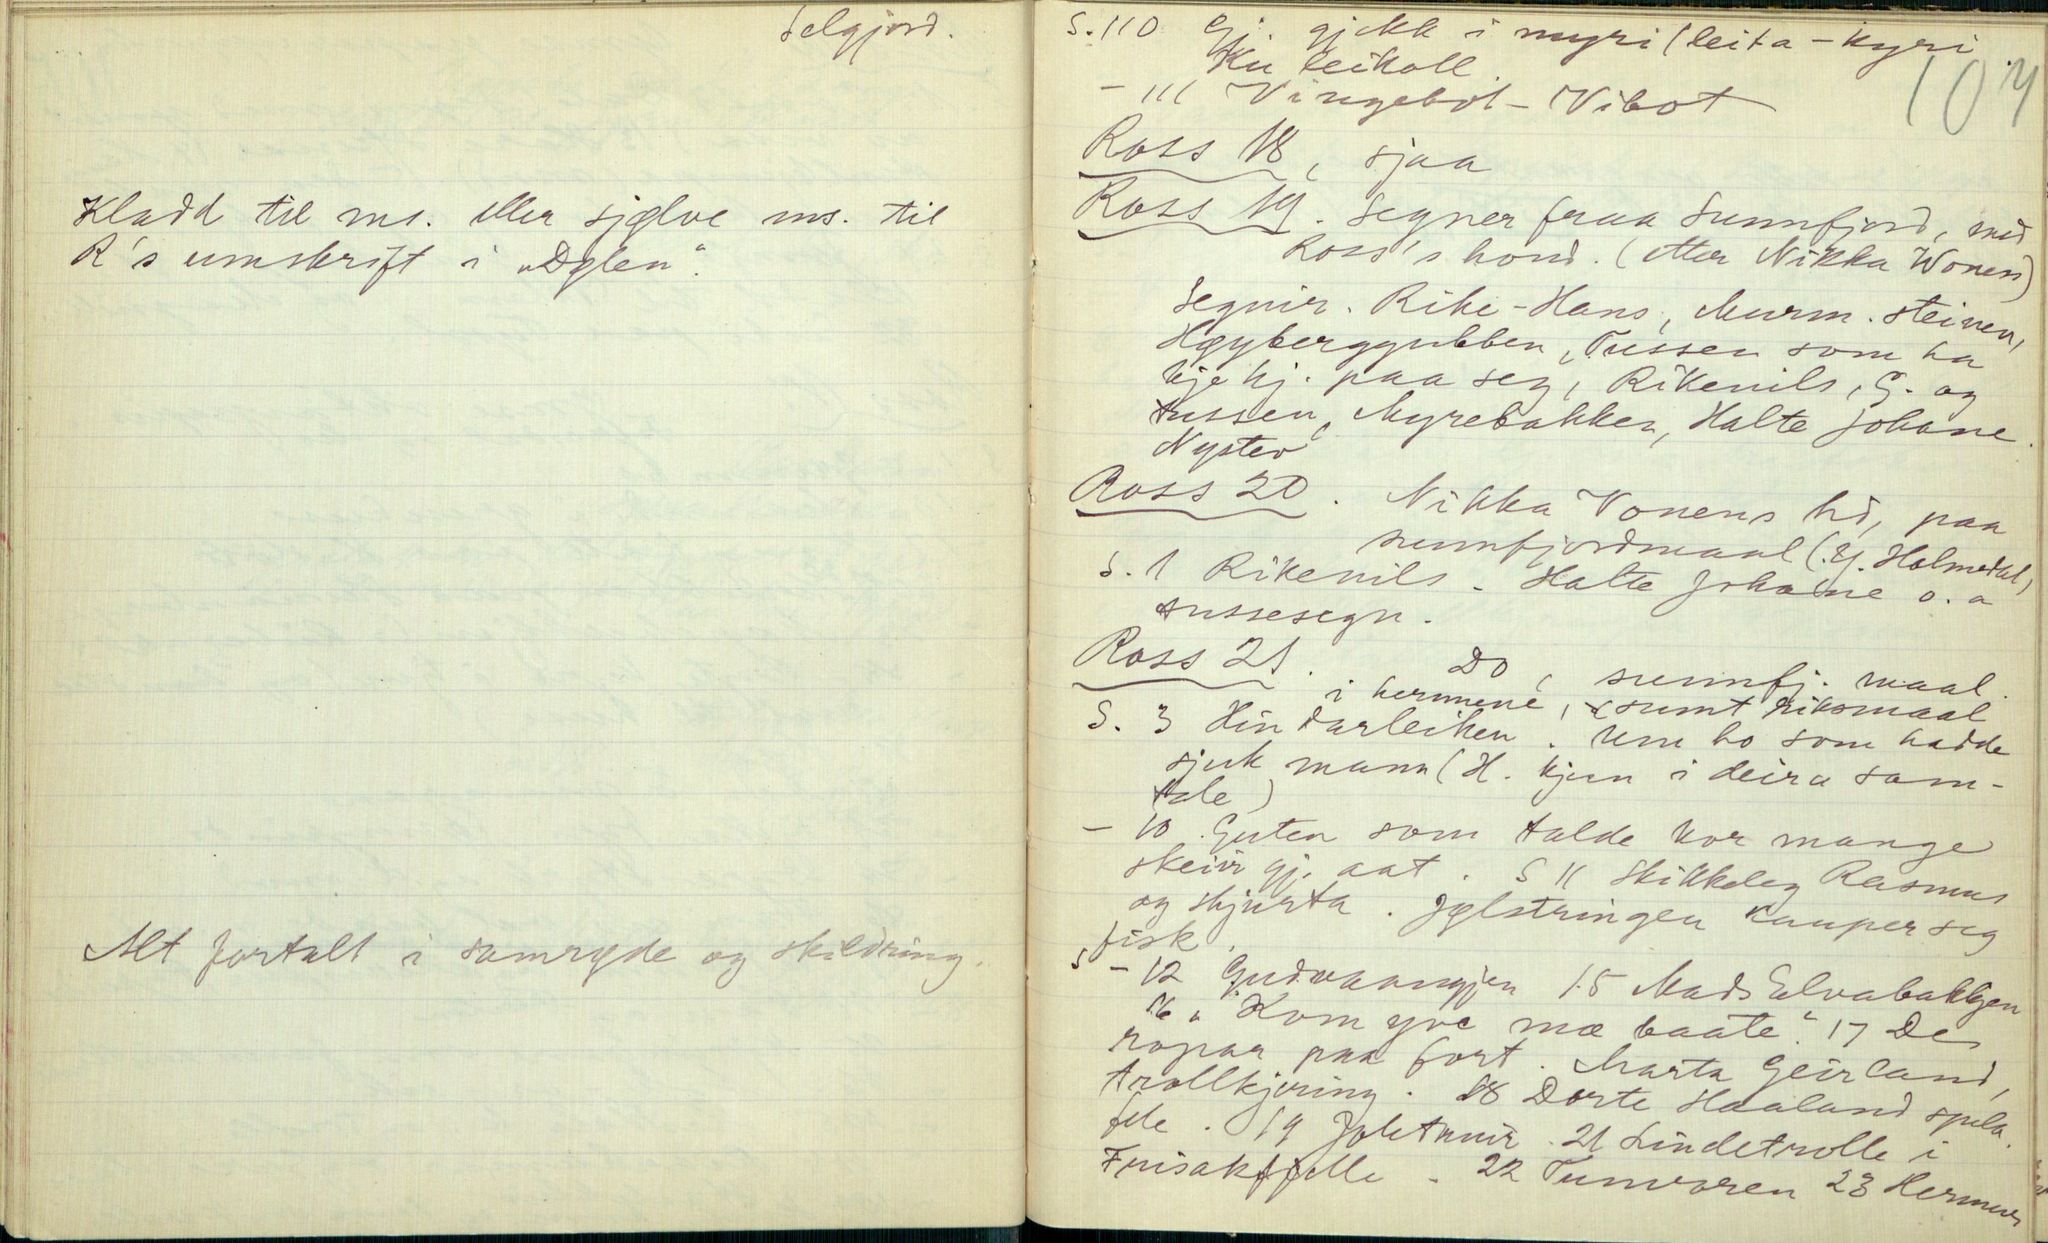 Selgjord.
Kladd til ms. eller sjølve ms. til
R's umskrift i „Dølen".
Alt fortalt i samrøde og skildring.
S. 110 Gj. gjekk i myri (leita - kyri.
Ku leikoll
104
- 111 Vingebot - Vibot
Ross 18, sjaa
Ross 19. Segner fraa Sunnfjord, med
Ross's hond. (etter Nikka Wonen)
Segnir. Rike-Hans, Murm. steinen,
Høyberggubben, Tussen som ha
kje hj. paa seg, Rikenils, G. og
tussen, Myrebakken, Halte Johane.
Nystev
Ross 20. Nikka Vonens hd, paa
sunnfjordmaal (Y. Holmedal,
S. 1 Rikenils. Halte Johane o. a
tussesegn.
Ross 21. Do, sunnfj. maal.
i hermene, (sumt riksmaal
S. 3 Hindarleiken. Um ho som hadde
sjuk mann (H. kjem i deira sam-
tale)
- 10. Guten som talde kor mange
skeier gj. aat. S 11 Skikkeleg Rasmus
og skjurta. Jølstringen kauper seg
fisk.
S - 12 Gudvaangjen 15 Mads Elvabakkjen
16 „Kom yve mæ baate". 17 De
ropar paa fort. Marta Geirland,
trollkjering. 18 Dorte Haaland spela.
fele. 19 Jolétnir. 21 Lindetrolle i
Fuisakfjelle. 22 Tumvoren 23 Hermer